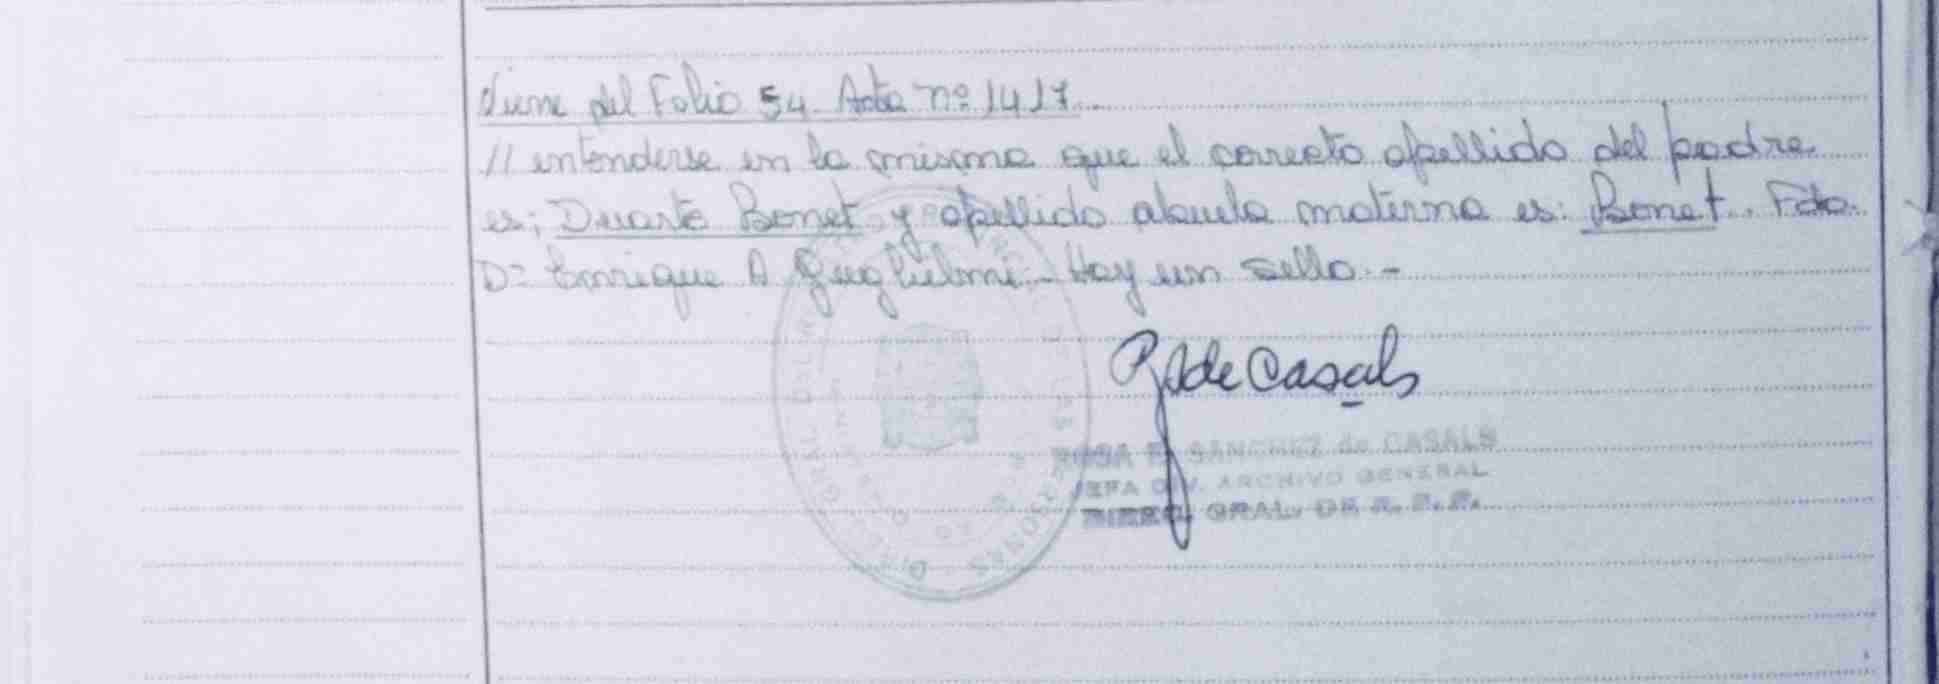 Viene del Folio 54. Acta nº 1417.
// entenderse en la misma que el correcto apellido del padre
es; Duarte Bonet y apellido abuela materna es: Bonet. Fdo.
Dº Enrique A Guglielmi - Hay un sello. -
R S de Casals
ROSA E. SANCHEZ de CASALS
JEFA DIV. ARCHIVO GENERAL
DIREC. GRAL. DE R. E. P.